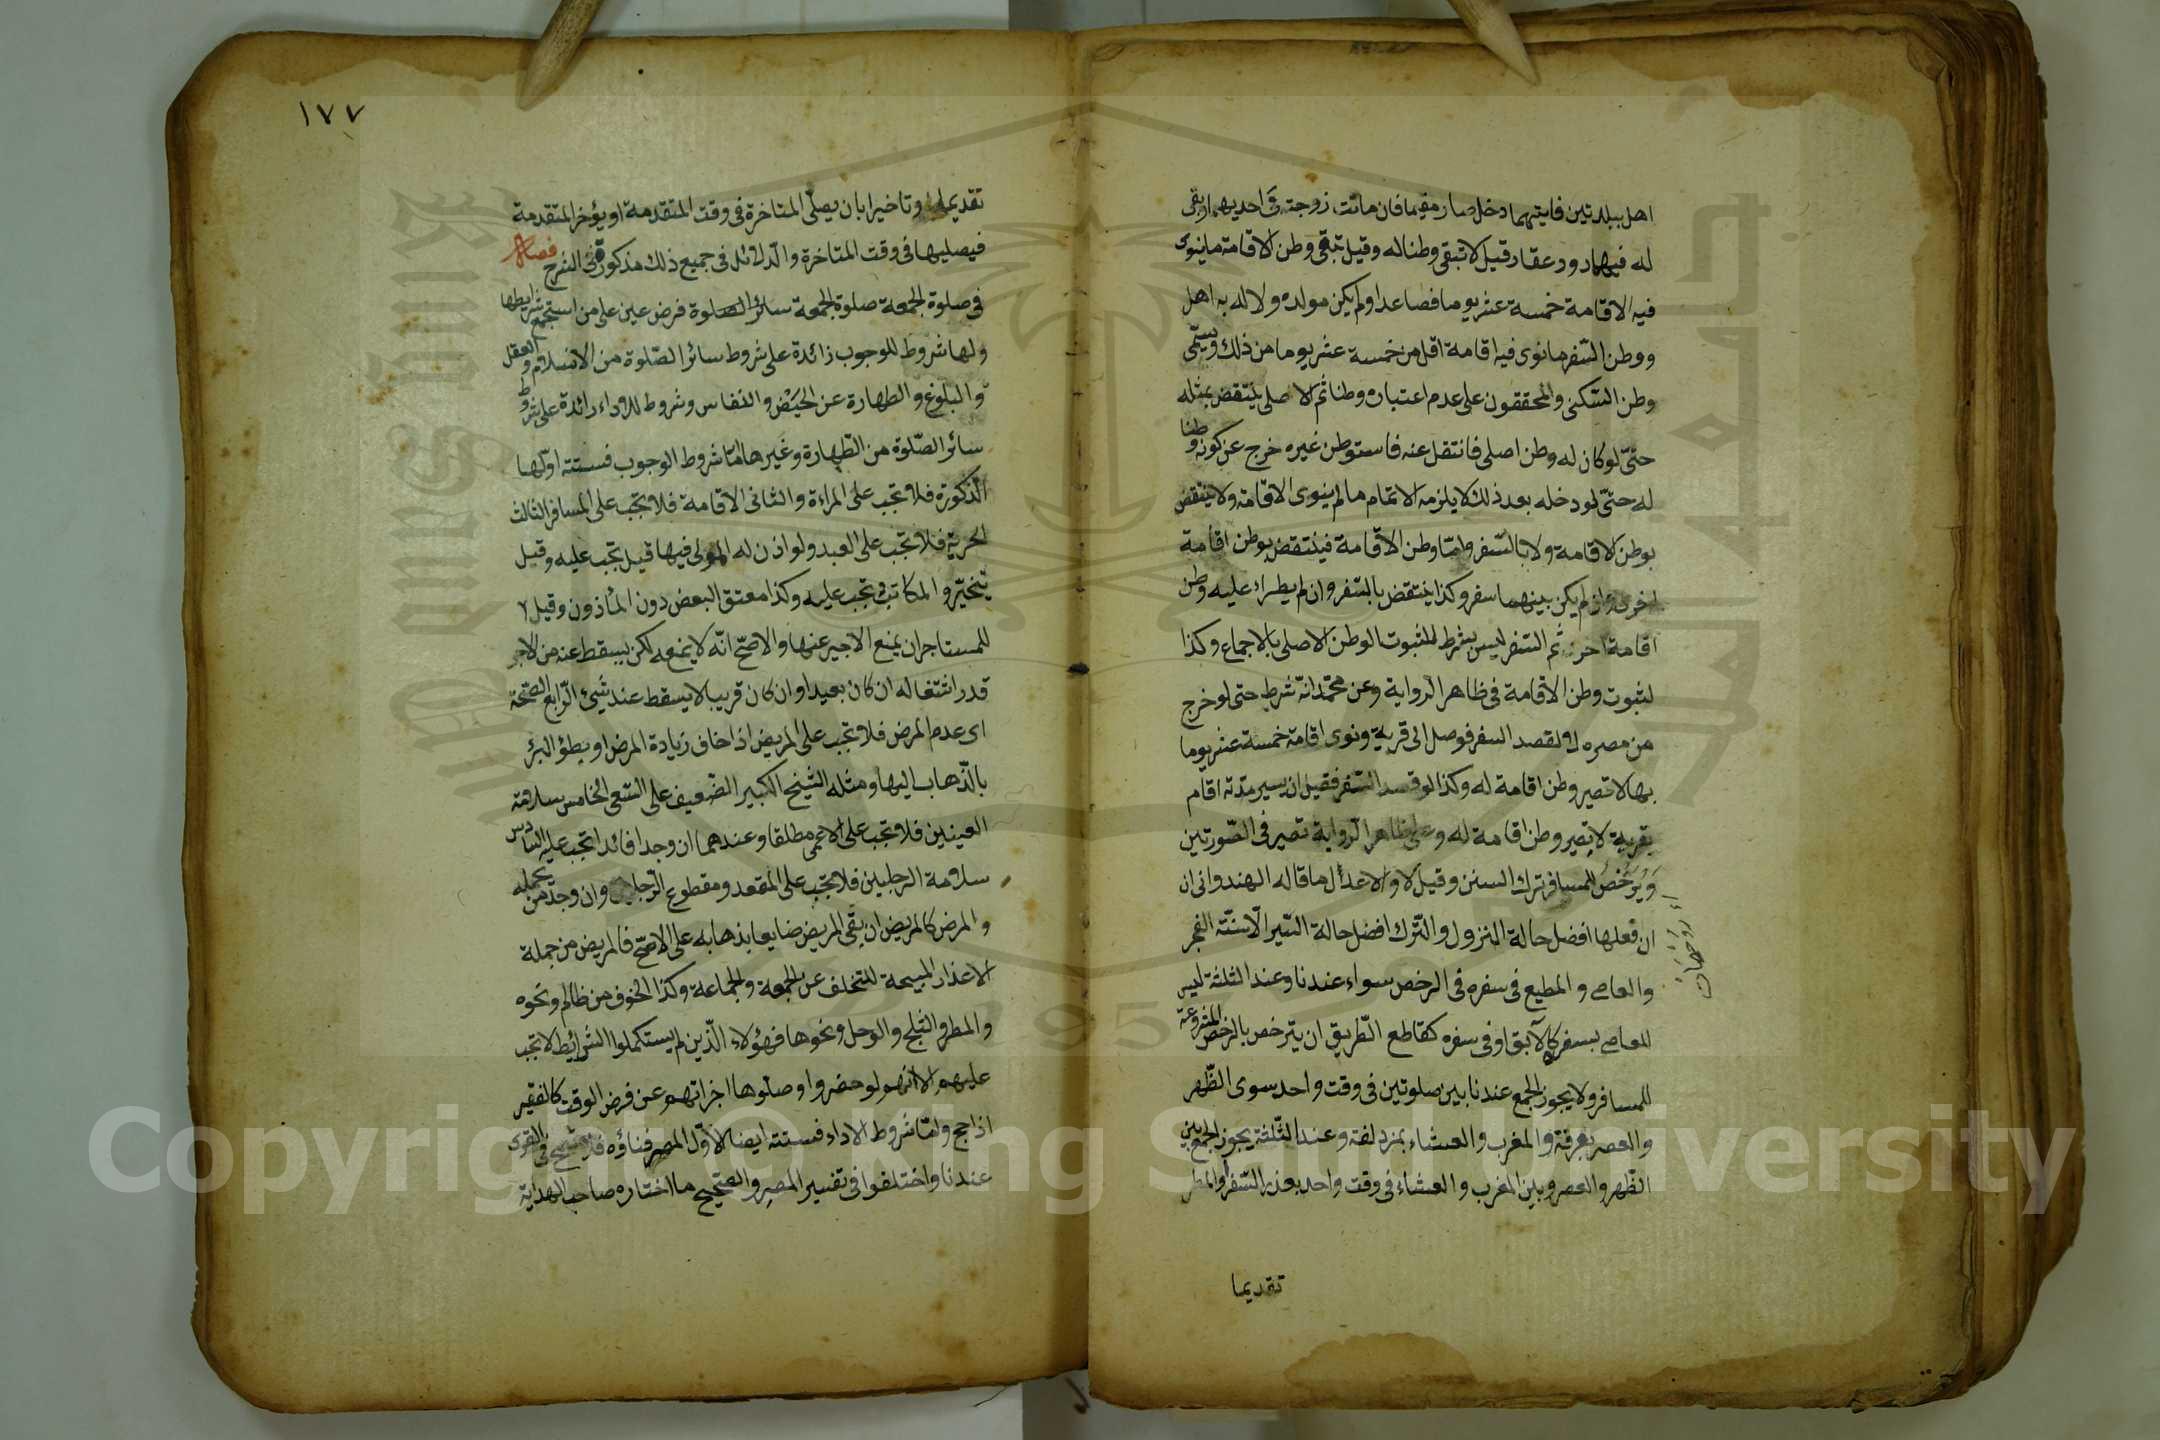 اهل ببلدتين فايتهما دخل صار مقيما فان ماتت زوجته في احديهما وبقى
له فيها دور وعقار قيل لا تبقى وطنا له وقيل تبقى وطن الاقامة ما ينوى
فيه الاقامة خمسة عشر يوما فصاعدا ولم يكن مولده ولا له به اهل
ووطن السفر ما نوى فيه اقامة اقل من خمسة عشر يوما من ذلك ويسمّى
وطن السكنى والمحققون على عدم اعتباره وطنا ثم الاصلى ينتقض بمثله
حتّى لو كان له وطن اصلى فانتقل عنه فاستوطن غيره خرج عن كونه وطنا
له حتّى لو دخله بعد ذلك لا يلزمه الاتمام ما لم ينوى الاقامة ولا ينتقض
بوطن الاقامة ولا بالسّفر وامّا وطن الاقامة فينتقض بوطن اقامة
اخرى وان لم يكن بينهما سفر وكذا ينتقض بالسّفر وان لم يطراء عليه وطن
اقامة اخر ثم السّفر ليس بشرط لثبوت الوطن الاصلى بالاجماع وكذا
لثبوت وطن الاقامة فى ظاهر الرواية وعن محمّد انّه شرط حتى لو خرج
من مصره لا لقصد السفر فوصل الى قرية ونوى اقامة خمسة عشر يوما
بها لا تصير وطن اقامة له وكذا لو قصد السّفر فقبل ان يسير مدّته اقام
بقرية لا تصير وطن اقامة له وعلى ظاهر الرّواية تصير فى الصّورتين
وَيُرَخَّصُ للمسافر ترك السنن وقيل لا والاعدل ما قاله الهندوانى ان
ان فعلها افضل حالة النزول والتّرك افضل حالة السّير الّا سنّة الفجر
والعاصى والمطيع فى سفره فى الرخص سواء عندنا وعند الثلثة ليس
للعاصى بسفره كالآبق او فى سفره كقاطع الطّريق ان يترخص بالرخص المشروعة
للمسافر ولا يجوز الجمع عندنا بين صلوتين فى وقت واحد سوى الظّهر
والعصر بعرفة والمغرب والعشاء بمزدلفة وعند الثّلثة يجوز الجمع بين
الظّهر والعصر وبين المغرب والعشاء فى وقت واحد بعذر السّفر والمطر
تقديما
١٧٧
تقديما وتاخيرا بان يصلّى المتاخرة فى وقت المتقدمة او يؤخر المتقدمة
فيصليها فى وقت المتاخرة والدلائل فى جميع ذلك مذكورة فى الشرح فصل
فى صلوة الجمعة صلوة الجمعة سائر الصلوة فرض عين على من استجمع شرايطها
ولها شروط للوجوب زائدة على شروط سائر الصّلوة من الاسلام والعقل
والبلوغ والطهارة عن الحَيْض والنفاس وشروط للاداء زائدة على شروط
سائر الصّلوة من الطّهارة وغيرها امّا شروط الوجوب فستّة اوّلها
الذّكورة فلا تجب على المراءة والثانى الاقامة فلا تجب على المسافر الثالث
الحرية فلا تجب على العبد ولو اذن له المولى فيها قيل تجب عليه وقيل
يتخيّر والمكاتب تجب عليه وكذا معتق البعض دون المأذون وقيل لا
للمستاجر ان يمنع الاجير عنها والاصحّ انّه لا يمنعه لكن يسقط عنه من الاجر
قدر اشتغاله ان كان بعيدا وان كان قريبا لا يسقط عند شئ الرّابع الصّحّة
اى عدم المرض فلا تجب على المريض اذا خاف زيادة المرض او بطؤ البرؤ
بالذّهاب اليها ومثله الشيخ الكبير الضّعيف على السّعى الخامس سلامة
العينين فلا تجب على الاعمى مطلقا وعندهما ان وجد قائدا تجب عليه السّادس
سلامة الرجلين فلا تجب على المقعد ومقطوع الرّجلين وان وجد من يحمله
والمرض كالمريض ان بقى المريض ضايعا بذهابه على الاصحّ فالمريض من جملة
الاعذار المبيحة للتخلف عن الجمعة والجماعة وكذا الخوف من ظالم ونحوه
والمطر والثلج والوحل ونحوها فهؤلاء الّذين لم يستكملوا الشرائط لا تجب
عليهم الا انهم لو حضروا وصلّوها اجزاتهم عن فرض الوقت كالفقير
اذا حج وامّا شروط الاداء فستّة ايضا الاوّل المصر فناؤه فلا تصح فى القرى
عندنا واختلفوا فى تفسير المصر والصّحيح ما اختاره صاحب الهداية
Copyright © King Saud University